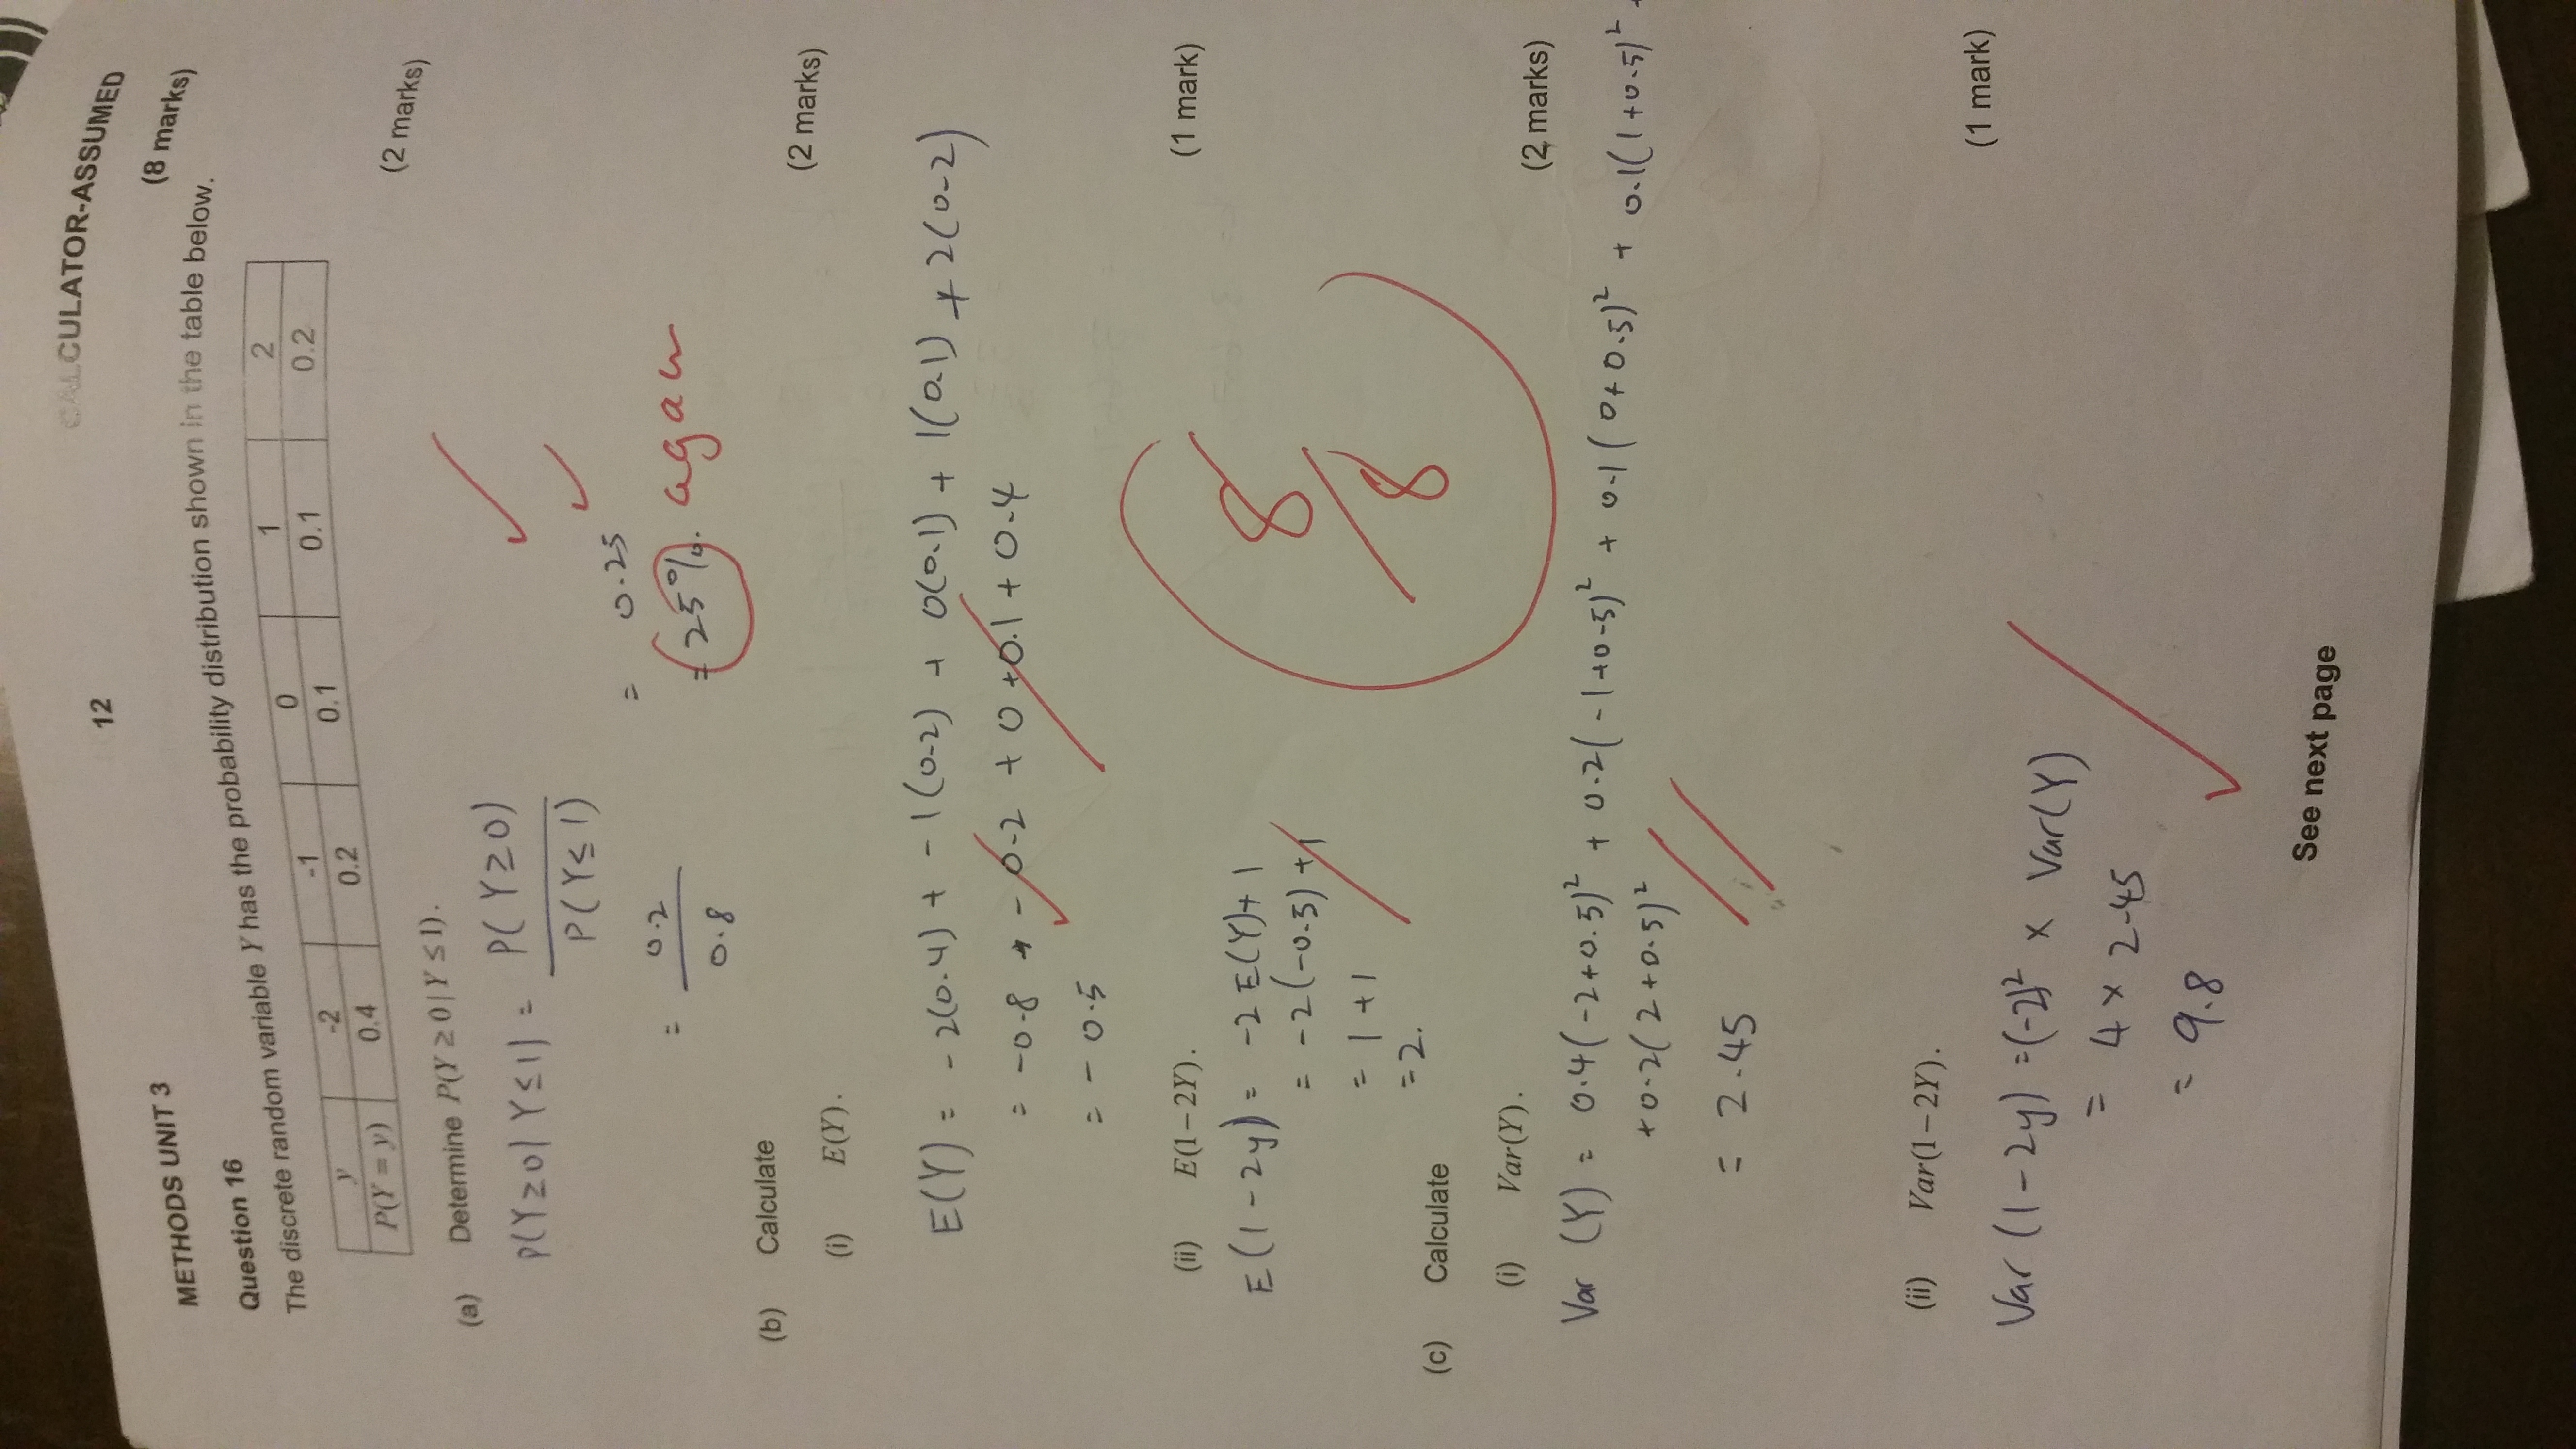 CALCULATOR-ASSUMED
12
METHODS UNIT 3
(8 marks)
Question 16
The discrete random variable Y has the probability distribution shown in the table below.
y -2 -1 0 1 2
P(Y = y) 0.4 0.2 0.1 0.1 0.2
(2 marks)
(a) Determine P(Y ≥ 0 | Y ≤ 1).
P(Y≥0| Y≤1) = P(Y≥0)
P(Y≤1)
= 0.2
0.8
= 0.25
= 25%. again
(b) Calculate
(2 marks)
(i) E(Y).
E(Y) = -2(0.4) + -1(0.2) + 0(0.1) + 1(0.1) + 2(0.2)
= -0.8 + -0.2 + 0 + 0.1 + 0.4
= -0.5
(ii) E(1-2Y).
(1 mark)
E(1-2y) = -2 E(Y)+ 1
= -2(-0.5) +1
= 1 +1
=2.
8
8
(c) Calculate
(i) Var(Y).
(2 marks)
Var (Y) = 0.4(-2+0.5)² + 0.2(-1+0.5)² + 0.1(0+0.5)² + 0.1(1+0.5)² +
+0.2(2+0.5)²
= 2.45
(ii) Var(1-2Y).
(1 mark)
Var (1-2y) =(-2)² x Var(Y)
= 4 x 2.45
= 9.8
See next page